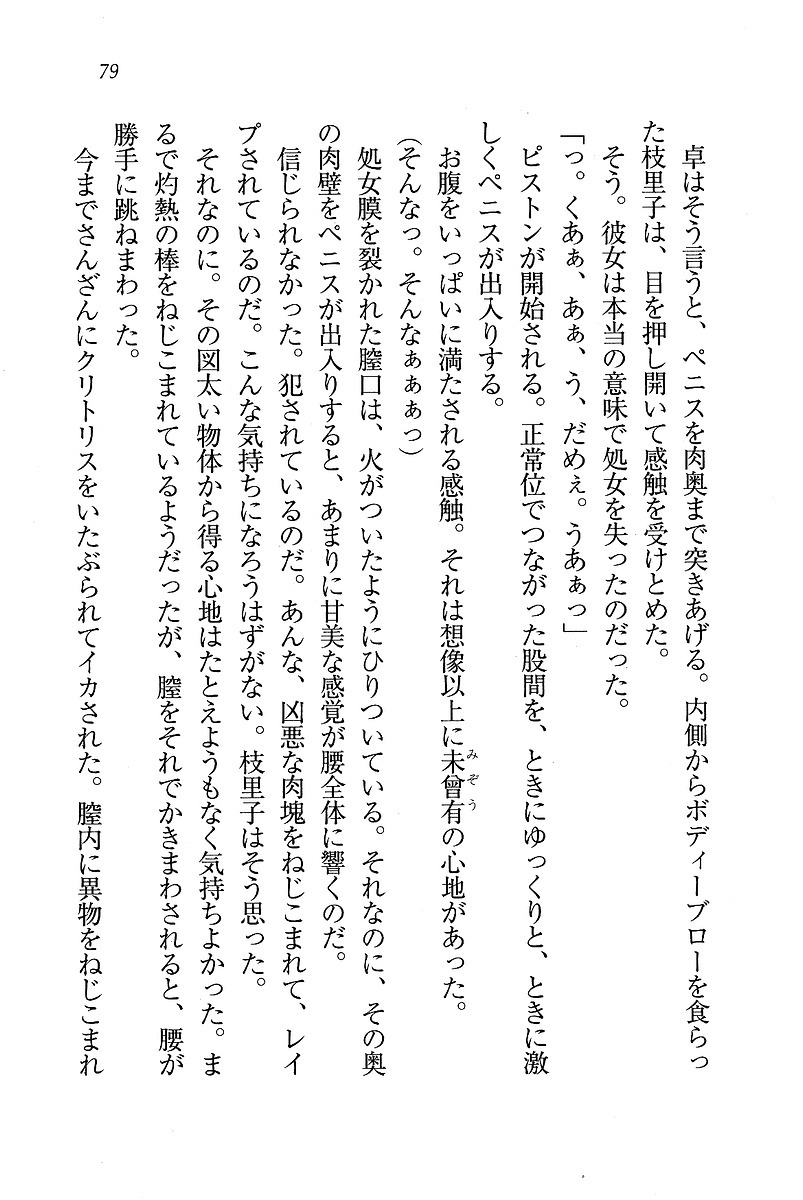 79
卓はそう言うと、ペニスを肉奥まで突きあげる。内側からボディーブローを食らっ
た枝里子は、目を押し開いて感触を受けとめた。
そう。彼女は本当の意味で処女を失ったのだった。
「っ。くあぁ、あぁ、う、だめぇ。うあぁっ」
ピストンが開始される。正常位でつながった股間を、ときにゆっくりと、ときに激
しくペニスが出入りする。
お腹をいっぱいに満たされる感触。それは想像以上に未曾有の心地があった。
みぞう
（そんなっ。そんなぁぁぁっ）
処女膜を裂かれた膣口は、火がついたようにひりついている。それなのに、その奥
の肉壁をペニスが出入りすると、あまりに甘美な感覚が腰全体に響くのだ。
信じられなかった。犯されているのだ。あんな、凶悪な肉塊をねじこまれて、レイ
プされているのだ。こんな気持ちになろうはずがない。枝里子はそう思った。
それなのに。その図太い物体から得る心地はたとえようもなく気持ちよかった。ま
るで灼熱の棒をねじこまれているようだったが、膣をそれでかきまわされると、腰が
勝手に跳ねまわった。
今までさんざんにクリトリスをいたぶられてイカされた。膣内に異物をねじこまれ